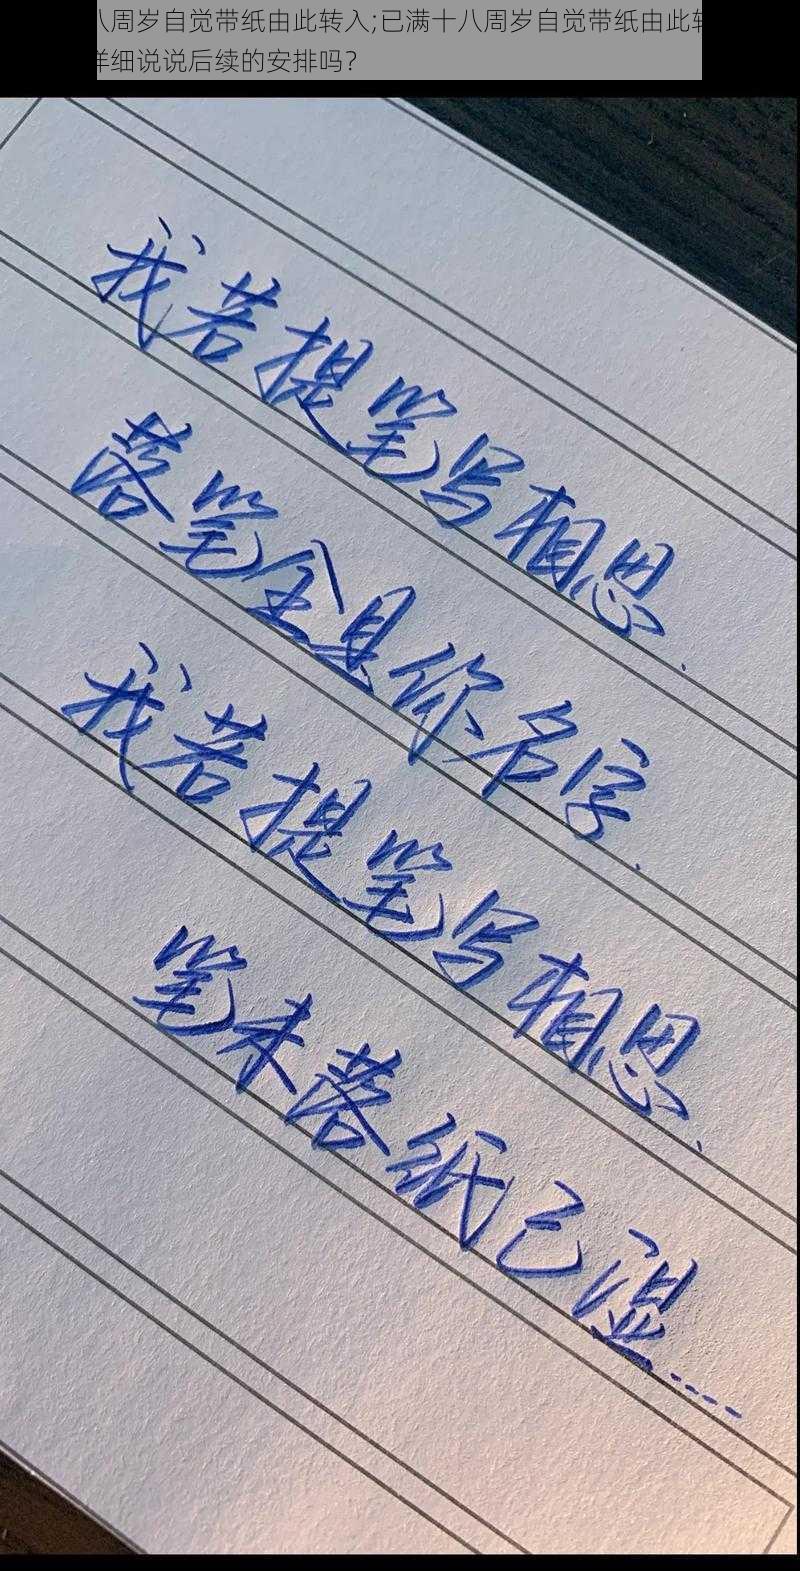 八周岁自觉带纸由此转入;已满十八周岁自觉带纸由此
详细说说后续的安排吗?
我若提笔写相思.
落笔全是你名字.
我若提笔写相思.
笔未落纸已湿....